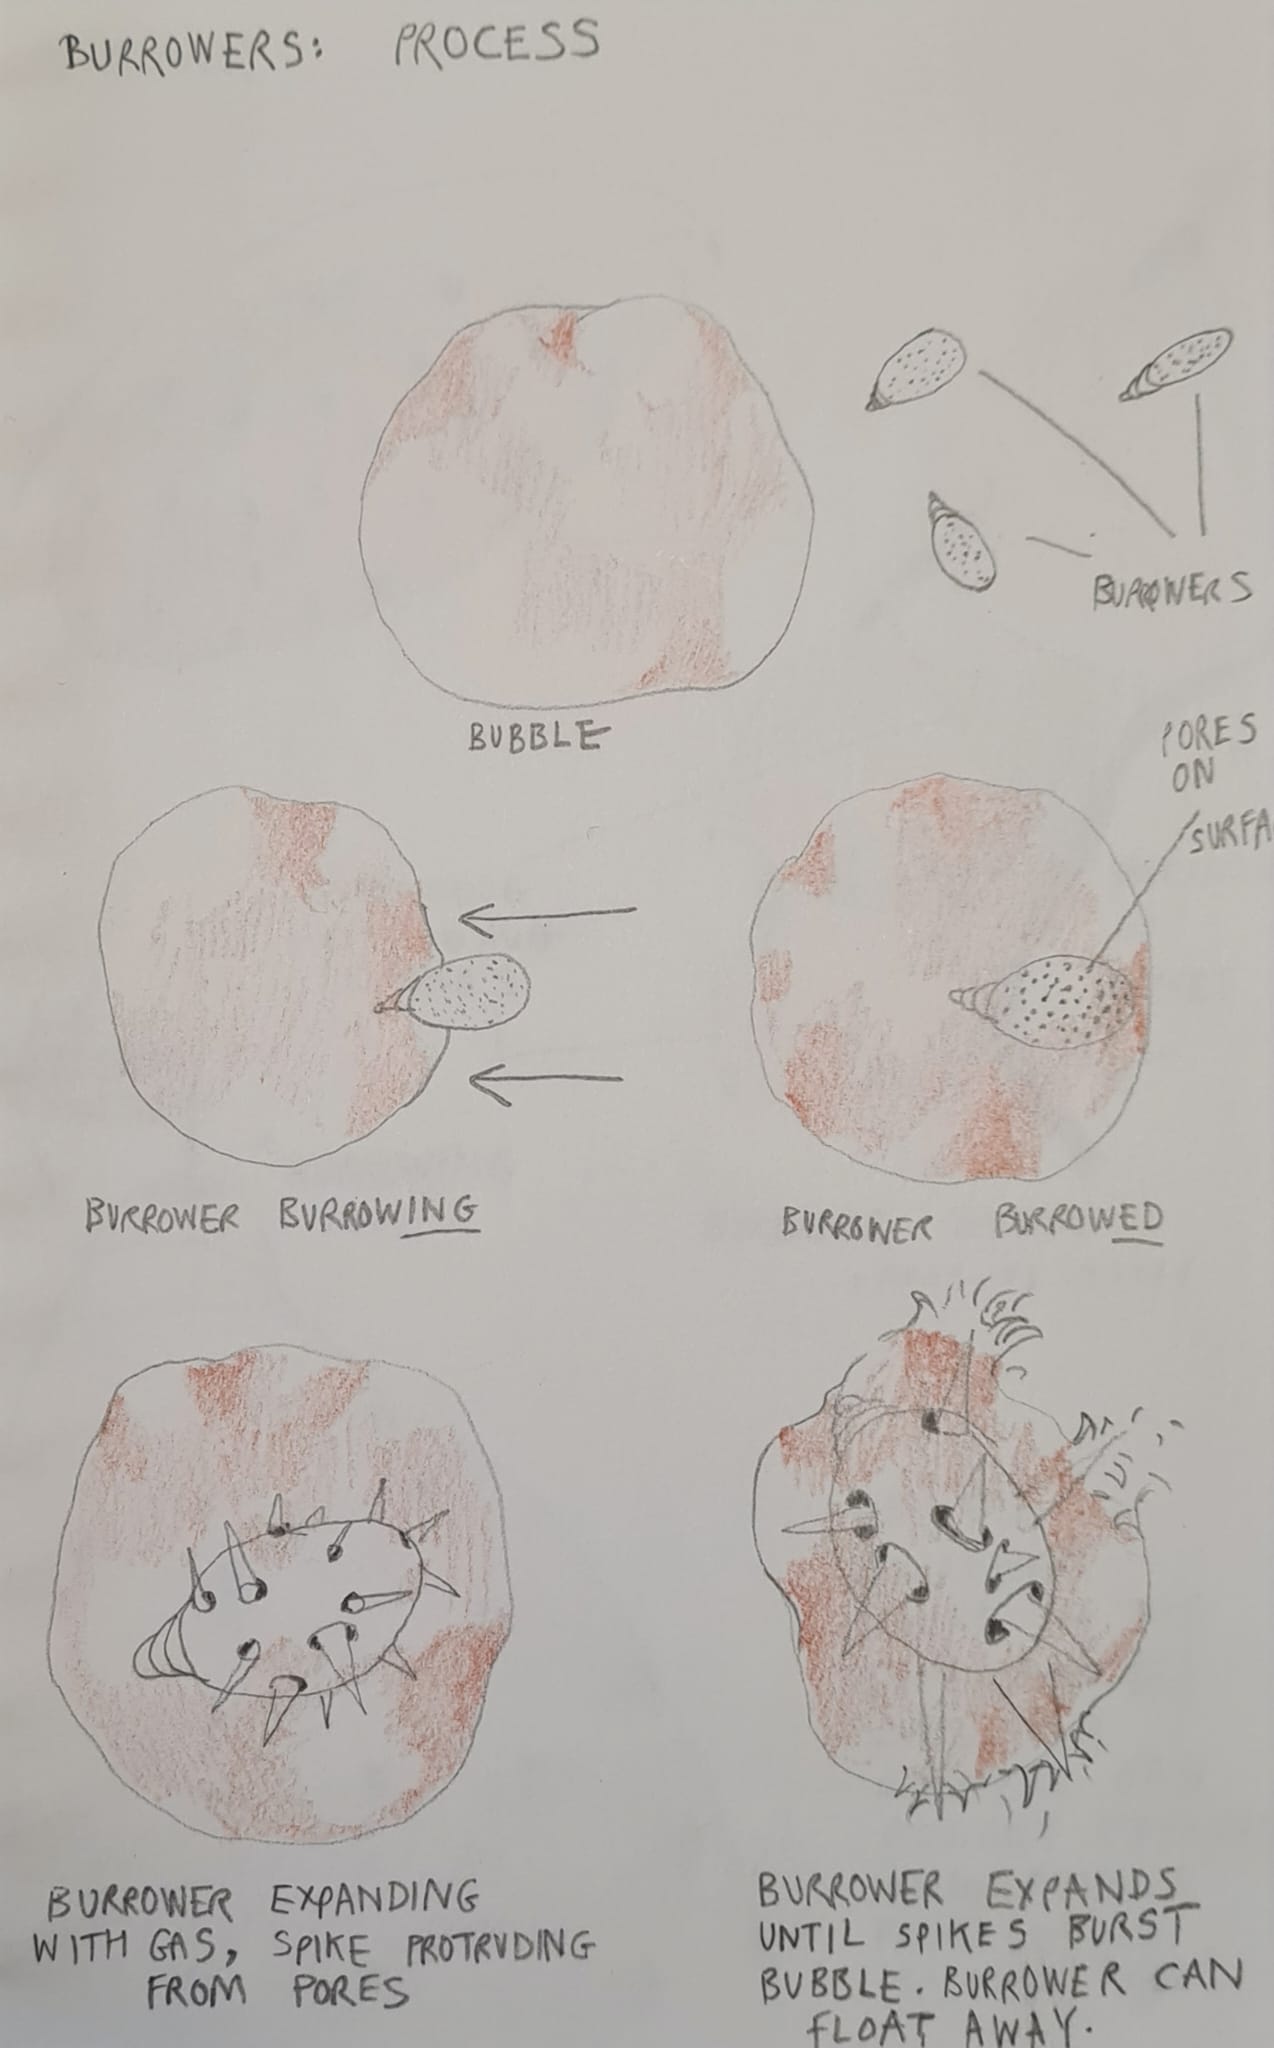 BURROWERS: PROCESS
BURROWERS
BUBBLE
PORES
ON
SURFA
BURROWER BURROWING
BURROWER BURROWED
BURROWER EXPANDING
WITH GAS, SPIKE PROTRUDING
FROM PORES
BURROWER EXPANDS
UNTIL SPIKES BURST
BUBBLE. BURROWER CAN
FLOAT AWAY.